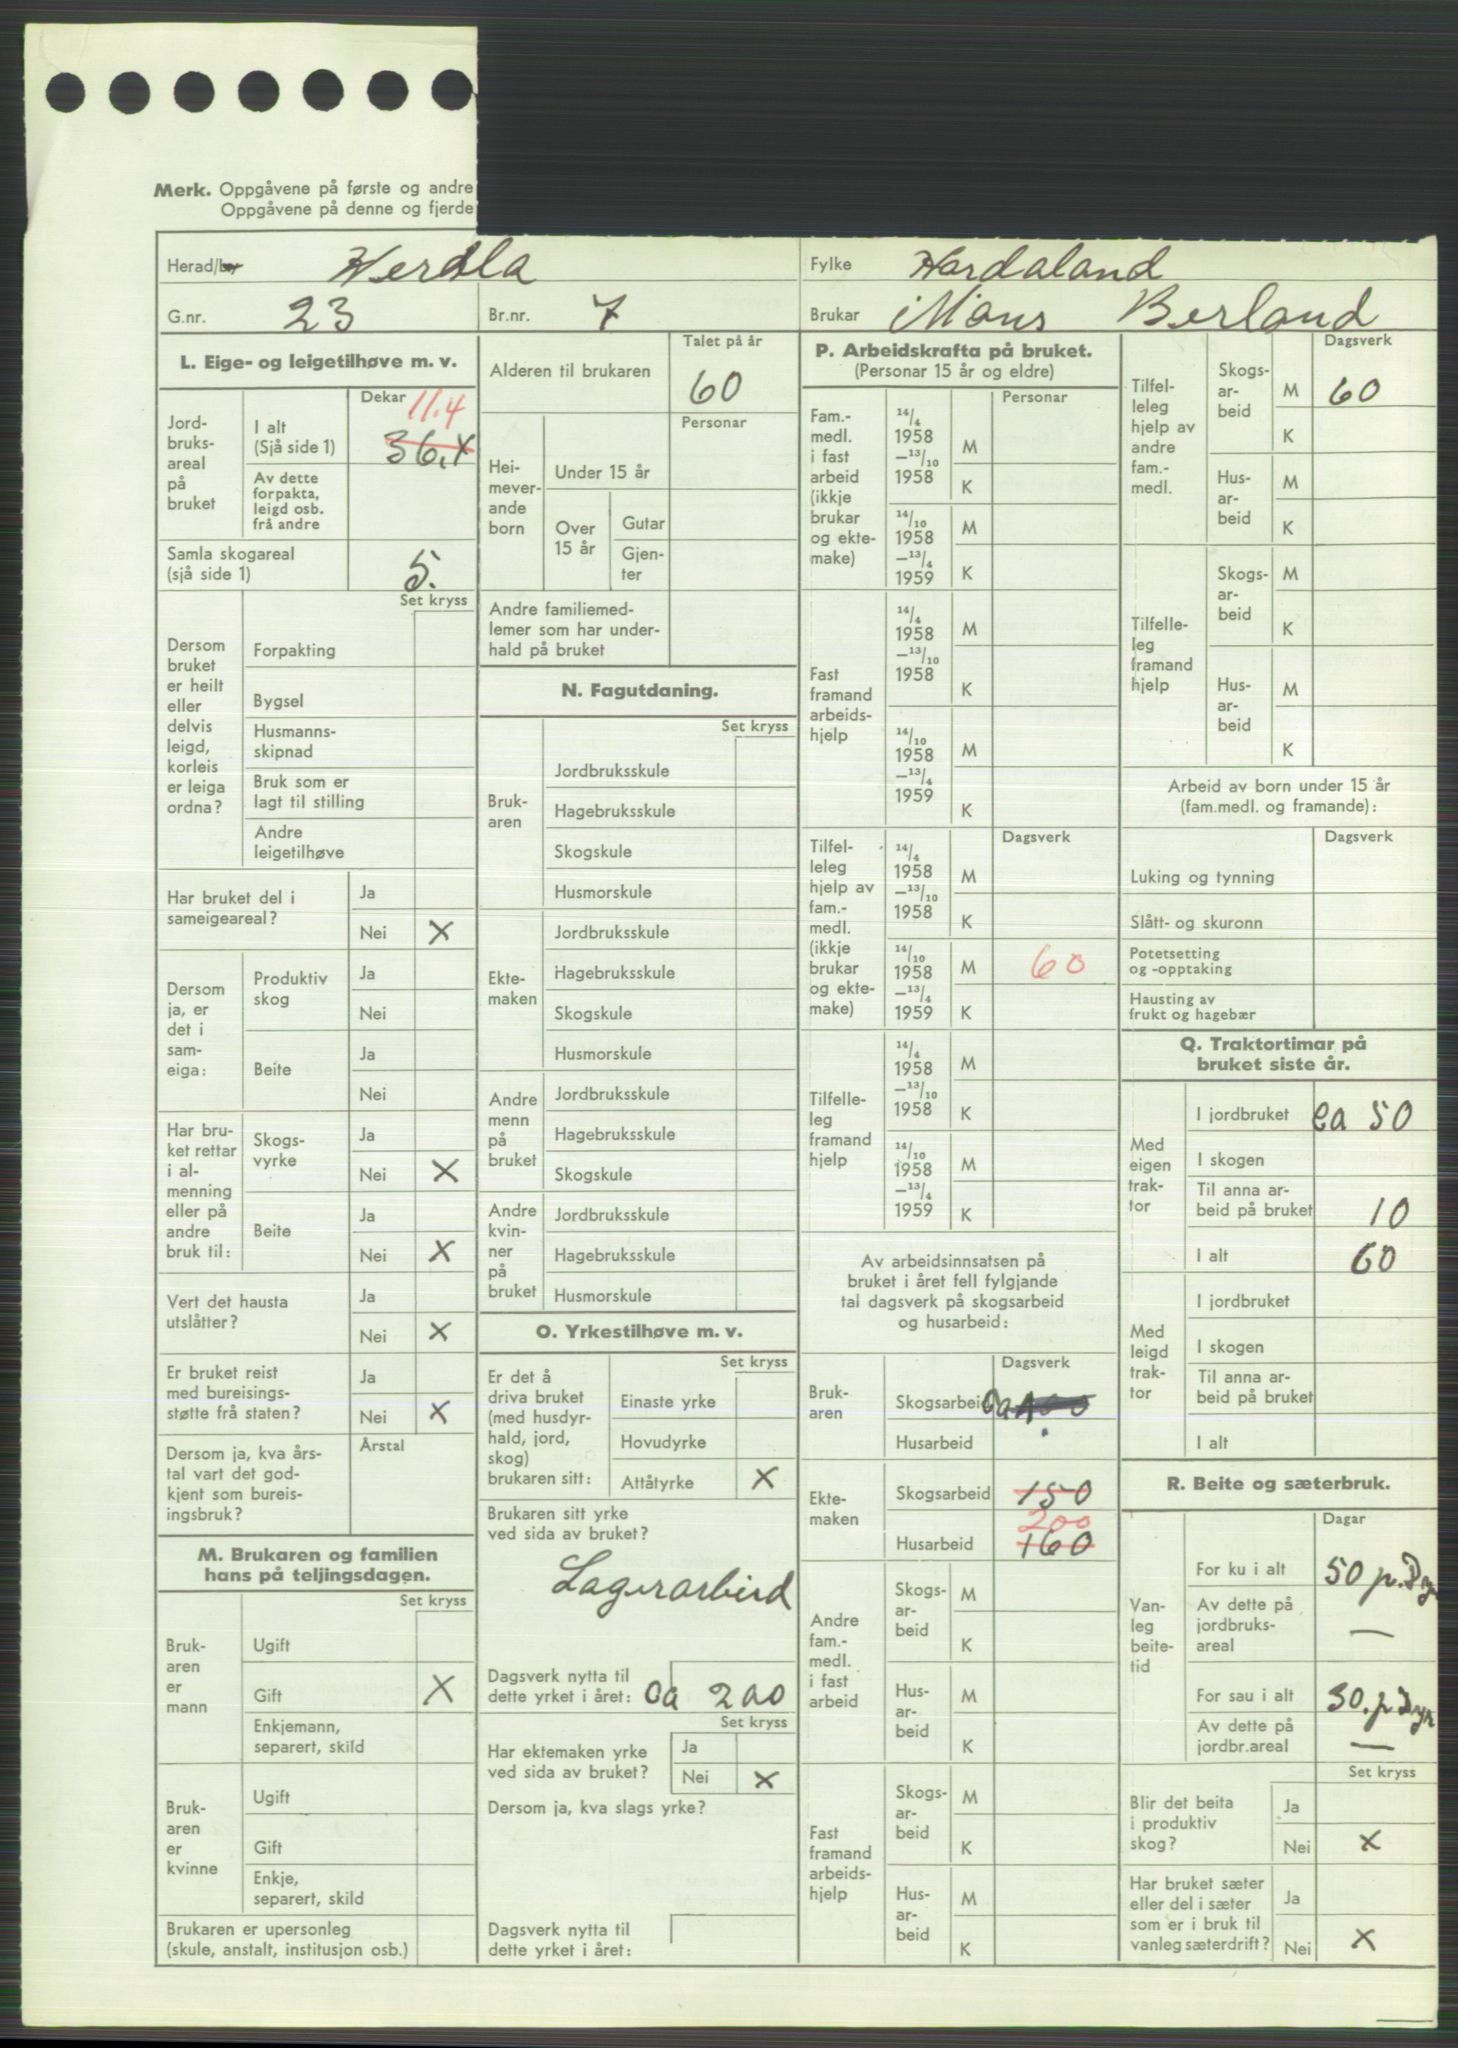 Merk. Oppgåvene på første og andre
Oppgåvene på denne og fjerde
Herad/by Herdla
Fylke Hordaland
G.nr. 23
Br.nr. 7
Brukar Mons Berland
L. Eige- og leigetilhøve m. v.
Jord-
bruks-
areal
på
bruket
Dekar
I alt
(Sjå side 1)
11.4
36.
Av dette
forpakta,
leigd osb.
frå andre
Samla skogareal
(sjå side 1)
5.
Set kryss
Dersom
bruket
er heilt
eller
delvis
leigd,
korleis
er leiga
ordna?
Forpakting
Bygsel
Husmanns-
skipnad
Bruk som er
lagt til stilling
Andre
leigetilhøve
Har bruket del i
sameigeareal?
Ja
Nei X
Dersom
ja, er
det i
sam-
eiga:
Produktiv
skog
Ja
Nei
Beite
Ja
Nei
Har bru-
ket rettar
i al-
menning
eller på
andre
bruk til:
Skogs-
vyrke
Ja
Nei X
Beite
Ja
Nei X
Vert det hausta
utslåtter?
Ja
Nei X
Er bruket reist
med bureisings-
støtte frå staten?
Ja
Nei X
Dersom ja, kva års-
tal vart det god-
kjent som bureis-
ingsbruk?
Årstal
M. Brukaren og familien
hans på teljingsdagen.
Set kryss
Bruk-
aren
er
mann
Ugift
Gift X
Enkjemann,
separert, skild
Bruk-
aren
er
kvinne
Ugift
Gift
Enkje,
separert, skild
Brukaren er upersonleg
(skule, anstalt, institusjon osb.)
Talet på år
Alderen til brukaren 60
Personar
Hei-
mever-
ande
born
Under 15 år
Over
15 år
Gutar
Gjen-
ter
Andre familiemed-
lemer som har under-
hald på bruket
N. Fagutdaning.
Set kryss
Bruk-
aren
Jordbruksskule
Hagebruksskule
Skogskule
Husmorskule
Ekte-
maken
Jordbruksskule
Hagebruksskule
Skogskule
Husmorskule
Andre
menn
på
bruket
Jordbruksskule
Hagebruksskule
Skogskule
Andre
kvin-
ner
på
bruket
Jordbruksskule
Hagebruksskule
Husmorskule
O. Yrkestilhøve m. v.
Set kryss
Er det å
driva bruket
(med husdyr-
hald, jord,
skog)
brukaren sitt:
Einaste yrke
Hovudyrke
Attåtyrke X
Brukaren sitt yrke
ved sida av bruket?
Lagerarbeid
Dagsverk nytta til
dette yrket i året: ca 200
Set kryss
Har ektemaken yrke
ved sida av bruket?
Ja
Nei X
Dersom ja, kva slags yrke?
Dagsverk nytta til
dette yrket i året:
P. Arbeidskrafta på bruket.
(Personar 15 år og eldre)
Personar
Fam.-
medl.
i fast
arbeid
(ikkje
brukar
og ekte-
make)
14/4
1958
—13/10
1958
M
K
14/10
1958
—13/4
1959
M
K
Fast
framand
arbeids-
hjelp
14/4
1958
—13/10
1958
M
K
14/10
1958
—13/4
1959
M
K
Dagsverk
Tilfel-
leleg
hjelp av
fam.-
medl.
(ikkje
brukar
og ekte-
make)
14/4
1958
—13/10
1958
M
K
14/10
1958
—13/4
1959
M 60
K
Tilfelle-
leg
framand
hjelp
14/4
1958
—13/10
1958
M
K
14/10
1958
—13/4
1959
M
K
Av arbeidsinnsatsen på
bruket i året fell fylgjande
tal dagsverk på skogsarbeid
og husarbeid:
Dagsverk
Bruk-
aren
Skogsarbeid
Husarbeid
Ekte-
maken
Skogsarbeid 150
200
Husarbeid 160
Andre
fam.-
medl.
i fast
arbeid
Skogs-
ar-
beid
M
K
Hus-
ar-
beid
M
K
Fast
framand
arbeids-
hjelp
Skogs-
ar-
beid
M
K
Hus-
ar-
beid
M
K
Dagsverk
Tilfel-
leleg
hjelp av
andre
fam.-
medl.
Skogs-
ar-
beid
M 60
K
Hus-
ar-
beid
M
K
Tilfelle-
leg
framand
hjelp
Skogs-
ar-
beid
M
K
Hus-
ar-
beid
M
K
Arbeid av born under 15 år
(fam.medl. og framande):
Dagsverk
Luking og tynning
Slått- og skuronn
Potetsetting
og -opptaking
Hausting av
frukt og hagebær
Q. Traktortimar på
bruket siste år.
Med
eigen
trak-
tor
I jordbruket ca 50
I skogen
Til anna ar-
beid på bruket 10
I alt 60
Med
leigd
trak-
tor
I jordbruket
I skogen
Til anna ar-
beid på bruket
I alt
R. Beite og sæterbruk.
Dagar
Van-
leg
beite-
tid
For ku i alt 50 p. Dyr
Av dette på
jordbruks-
areal —
For sau i alt 30. p Dyr
Av dette på
jordbr.areal —
Set kryss
Blir det beita
i produktiv
skog?
Ja
Nei X
Har bruket sæter
eller del i sæter
som er i bruk til
vanleg sæterdrift?
Ja
Nei X